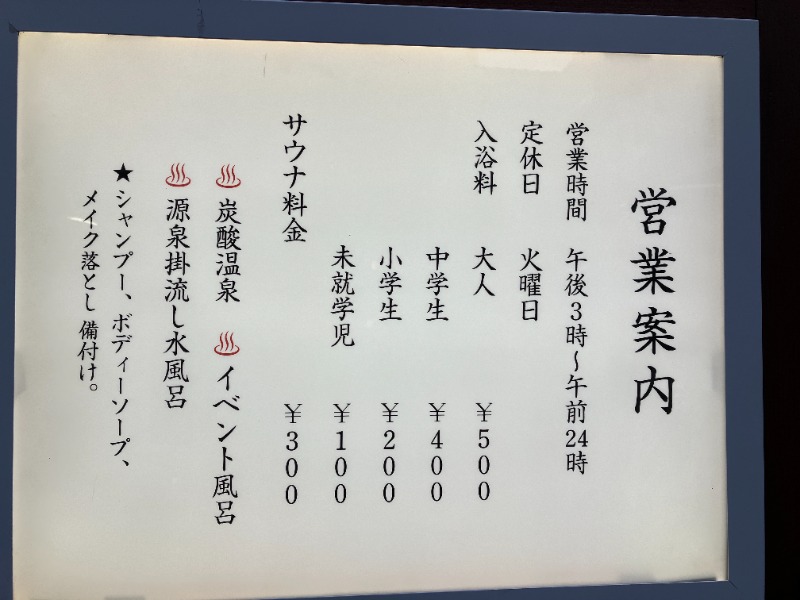 営業案内
営業時間 午後3時～午前24時
定休日 火曜日
入浴料 大人 ￥500
中学生 ￥400
小学生 ￥200
未就学児 ￥100
サウナ料金 ￥300
♨ 炭酸温泉 ♨ イベント風呂
♨ 源泉掛流し水風呂
★シャンプー、ボディーソープ、
メイク落とし 備付け。